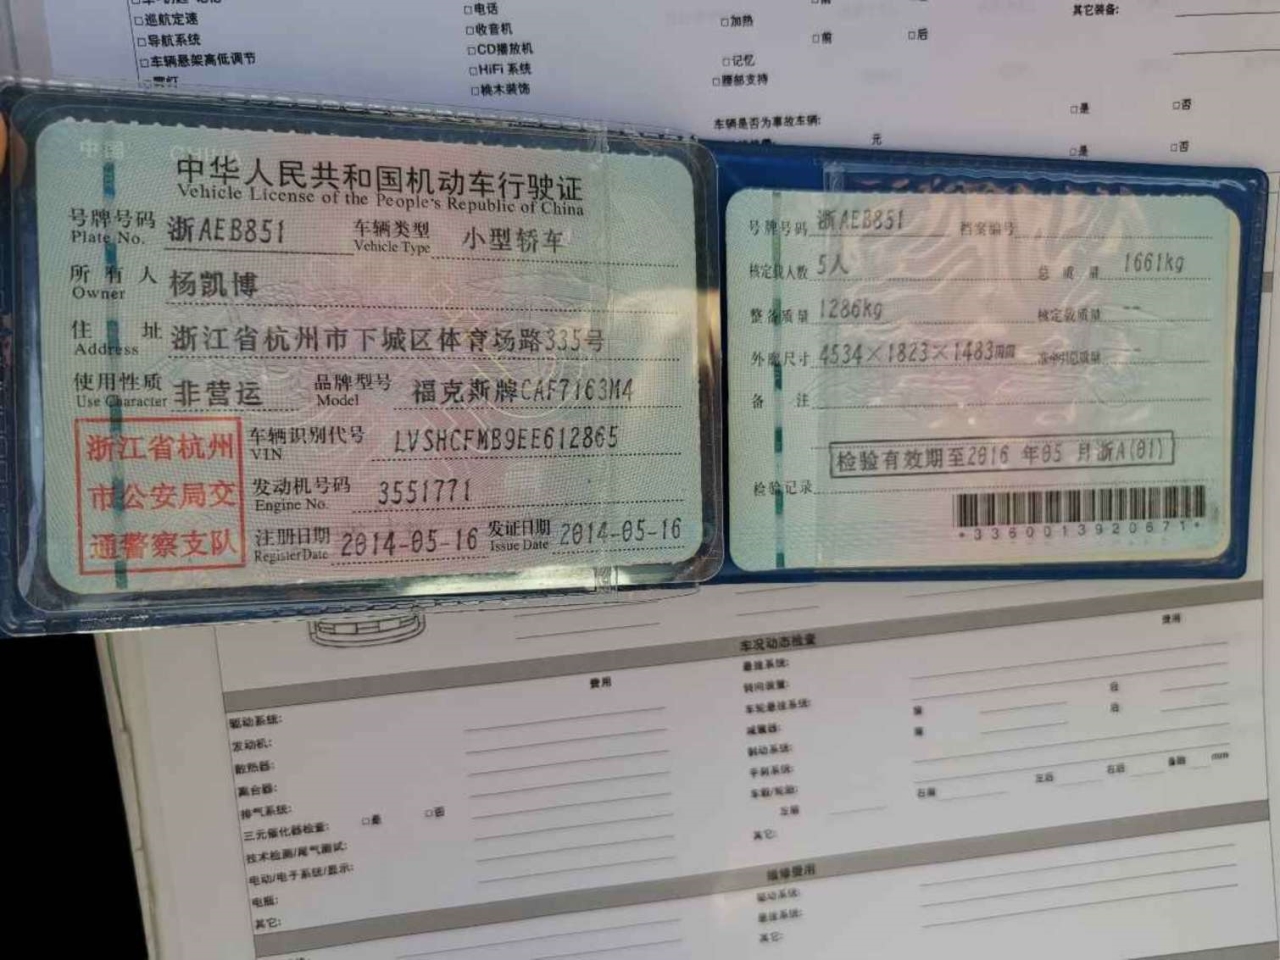 □巡航定速
□导航系统
□车辆悬架高低调节
□电话
□收音机
□CD播放机
□HiFi 系统
□桃木装饰
□加热
□前 □后
□记忆
□腰部支持
其它装备:
车辆是否为事故车辆:
□是 □否
元
□是 □否
中国 CHINA
中华人民共和国机动车行驶证
Vehicle License of the People's Republic of China
号牌号码 浙AEB851 车辆类型 小型轿车
Plate No. Vehicle Type
所有人 杨凯博
Owner
住址 浙江省杭州市下城区体育场路335号
Address
使用性质 非营运 品牌型号 福克斯牌CAF7163M4
Use Character Model
浙江省杭州
市公安局交
通警察支队
车辆识别代号 LVSHCFMB9EE612865
VIN
发动机号码 3551771
Engine No.
注册日期 2014-05-16 发证日期 2014-05-16
Register Date Issue Date
号牌号码 浙AEB851 档案编号
核定载人数 5人 总质量 1661kg
整备质量 1286kg 核定载质量 --
外廓尺寸 4534×1823×1483mm 准牵引总质量 --
备注
检验有效期至2016 年05 月浙A(01)
检验记录
*3360013920671*
车况动态检查
费用
费用
驱动系统:
发动机:
散热器:
离合器:
排气系统:
三元催化器检查: □是 □否
技术检测/尾气测试:
电动/电子系统/显示:
电瓶:
其它:
悬挂系统:
转向装置:
车轮悬挂系统:
减震器:
制动系统:
手刹系统:
车载/轮胎:
左前 右前 左后 右后 备胎 mm
其它:
维修费用
驱动系统:
悬挂系统:
其它: